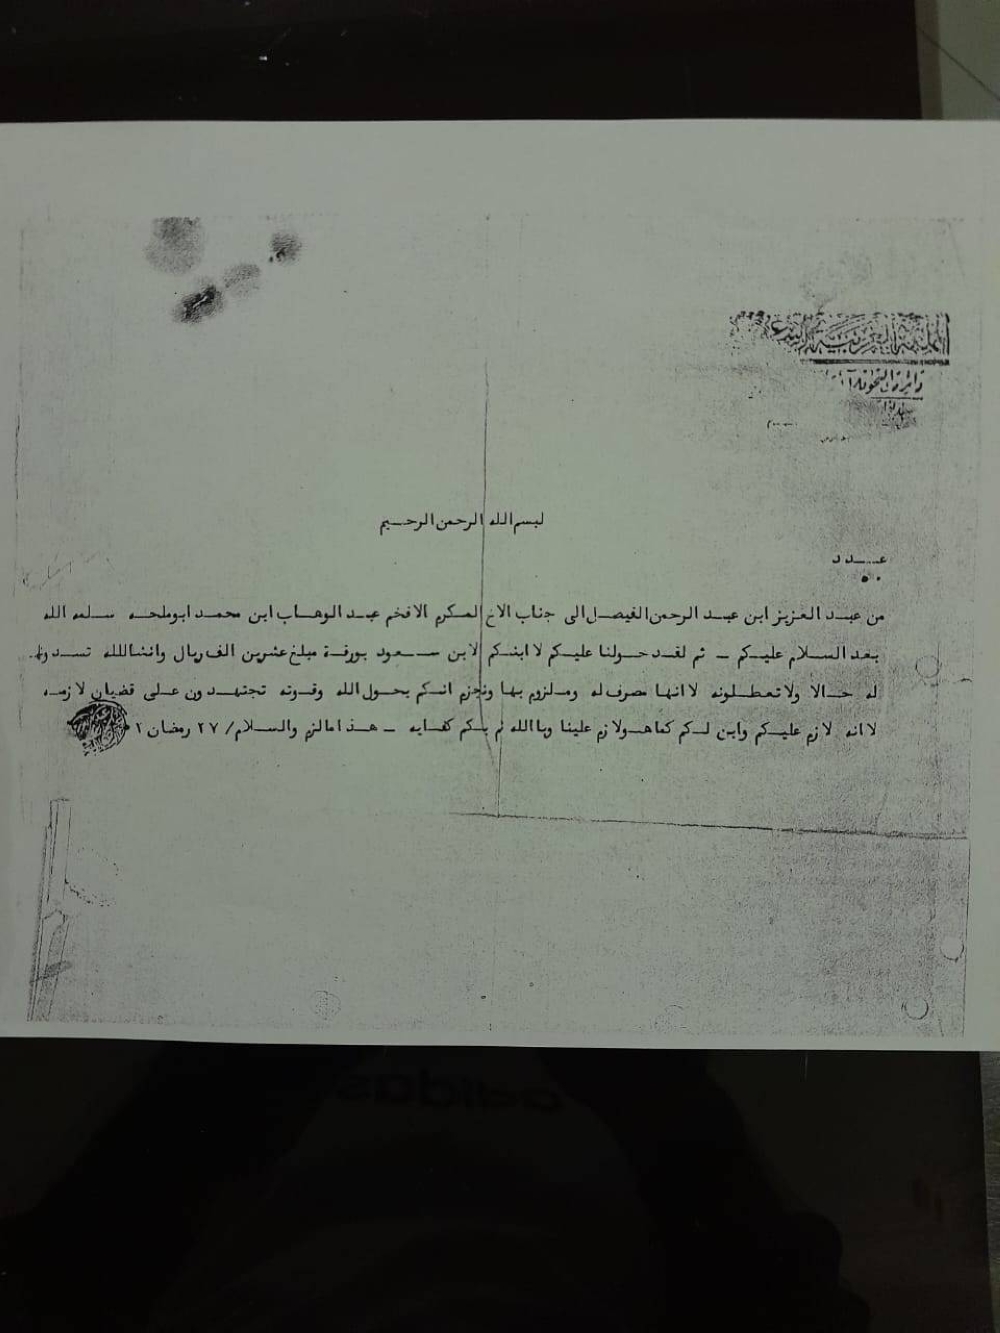 المملكة العربية السعودية
بسم الله الرحمن الرحيم
عــدد
من عبد العزيز ابن عبد الرحمن الفيصل الى جناب الاخ المكرم الافخم عبد الوهاب ابن محمد ابوملحه سلمه الله
بعد السلام عليكم - ثم لقد حولنا عليكم لا ابنكم لابن سعود بورقة مبلغ عشرين الف ريال وانشاالله تسدونها
له حالا ولا تعطلونه لا انها مصرف له وملزوم بها ونجزم انكم بحول الله وقوته تجتهدون على قضيان لازمه
لا انه لازم عليكم وابن لكم كما هو لازم علينا وباالله ثم بكم كفايه - هذا مالزم والسلام / ٢٧ رمضان
adidas